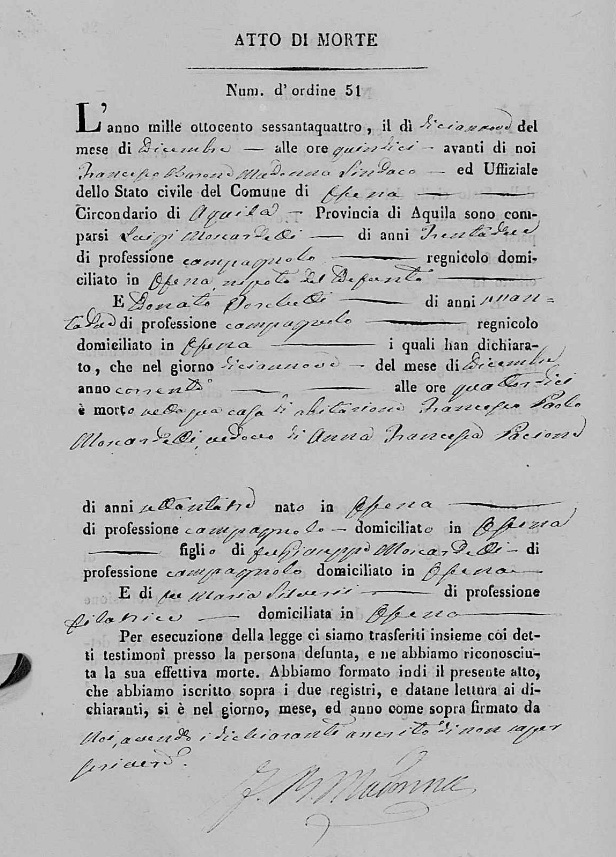 ATTO DI MORTE
Num. d' ordine 51
L'anno mille ottocento sessantaquattro, il dì diciannove del
mese di Dicembre — alle ore quindici — avanti di noi
Francesco Barone Madonna Sindaco — ed Uffiziale
dello Stato civile del Comune di Ofena
Circondario di Aquila — Provincia di Aquila sono com-
parsi Luigi Moscardelli — di anni Trentadue
di professione campagnolo — regnicolo domi-
ciliato in Ofena nipote del Defonto
E Donato — di anni
di professione campagnolo — regnicolo
domiciliato in Ofena — i quali han dichiara-
to, che nel giorno diciannove — del mese di Dicembre
anno corrente — alle ore quattordici
è morto nella sua casa di abitazione Francesco Paolo
Moscardelli, vedovo di Anna Francesca Pacione
di anni settantatre nato in Ofena
di professione campagnolo — domiciliato in Ofena
— figlio di fu Giuseppe Moscardelli — di
professione campagnolo domiciliato in Ofena
E di fu Maria Silveri — di professione
filatrice — domiciliata in Ofena
Per esecuzione della legge ci siamo trasferiti insieme coi det-
ti testimonî presso la persona defunta, e ne abbiamo riconosciu-
ta la sua effettiva morte. Abbiamo formato indi il presente atto,
che abbiamo iscritto sopra i due registri, e datane lettura ai di-
chiaranti, si è nel giorno, mese, ed anno come sopra firmato da
Noi, avendo i dichiaranti asserito di non saper
scrivere.
F. B. Madonna